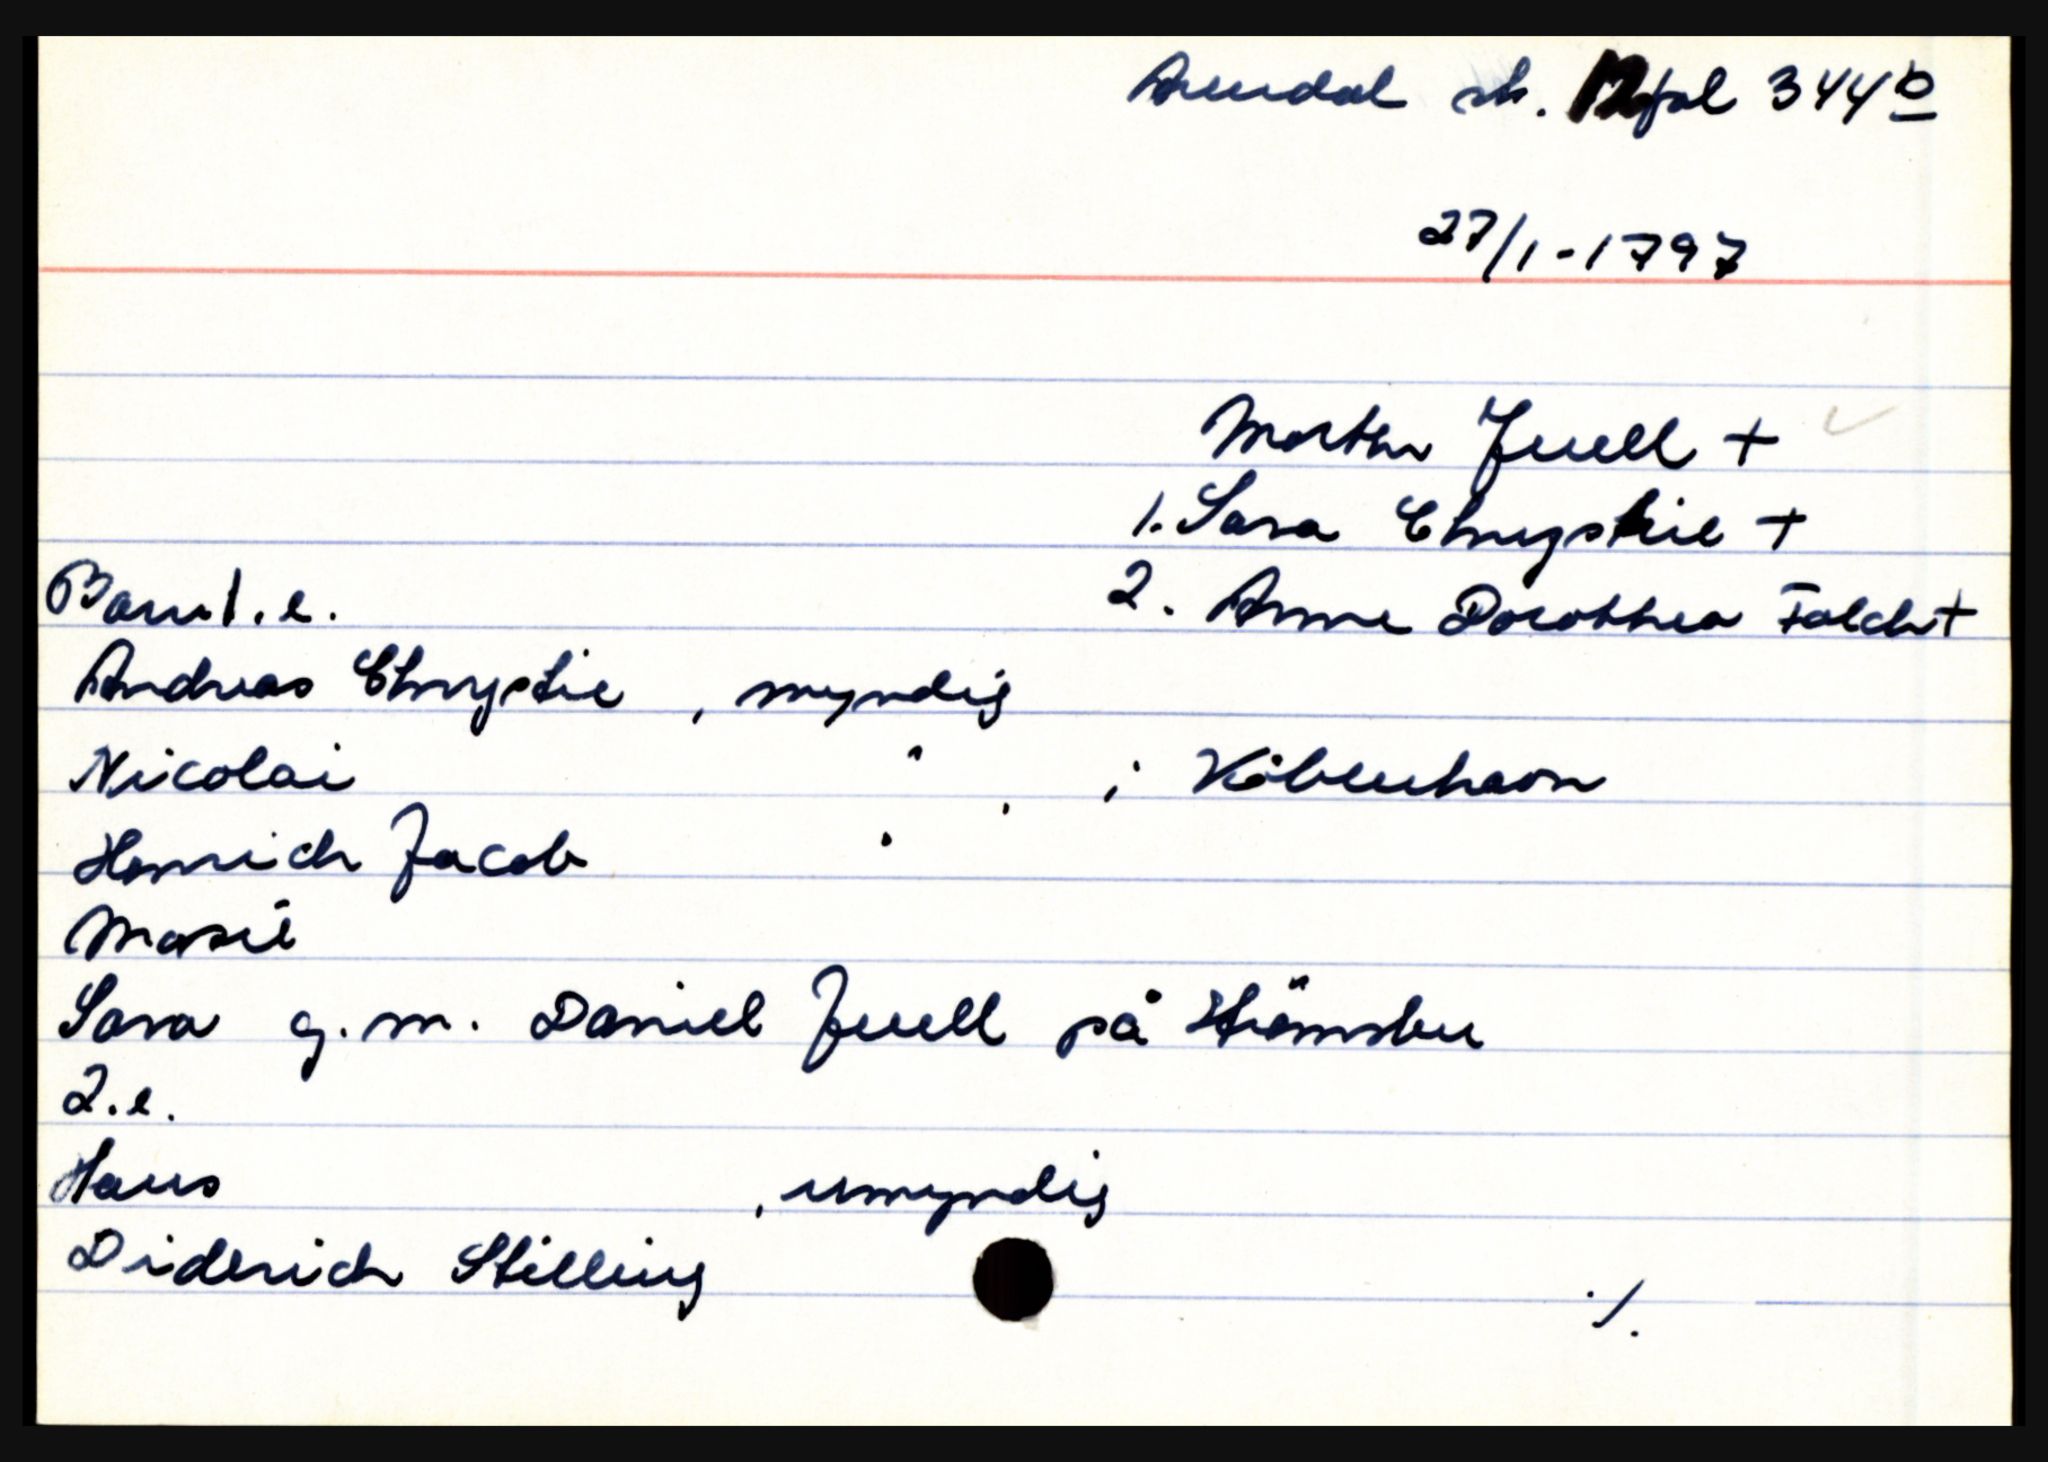 Arendal sk. 12 fol 344 b
27/1-1797
Morten Juell +
1. Sara Chrystie +
2. Anne Dorothea Falch +
Barn 1. e.
Andreas Chrystie , myndig
Nicolai " , i Köbenhavn
Henrich Jacob "
Marie
Sara g.m. Daniel Juell på Strömsbu
2.e.
Hans , umyndig
Diderich Stilling
./.